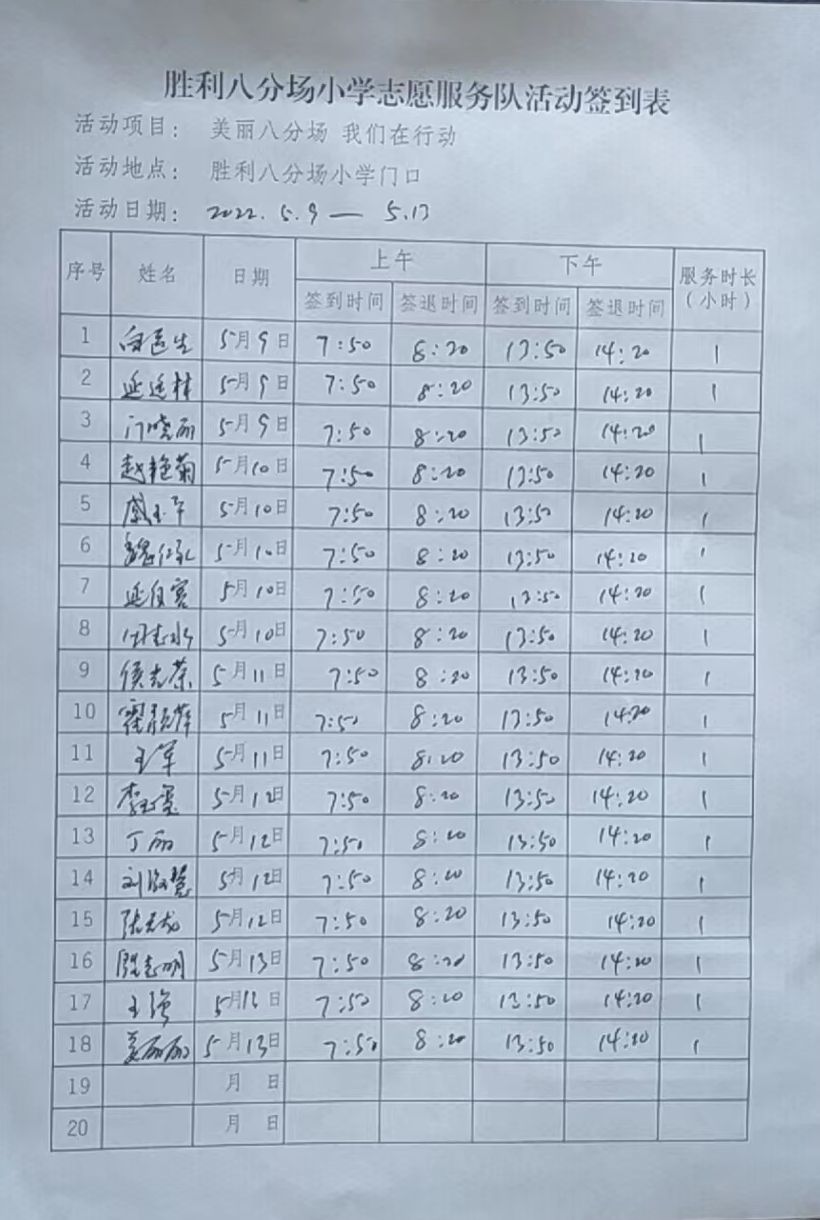 胜利八分场小学志愿服务队活动签到表
活动项目： 美丽八分场 我们在行动
活动地点： 胜利八分场小学门口
活动日期： 2022.5.9 — 5.13
序号 姓名 日期 上午 下午 服务时长（小时）
签到时间 签退时间 签到时间 签退时间
1 白医生 5月9日 7:50 8:20 13:50 14:20 1
2 5月9日 7:50 8:20 13:50 14:20 1
3 门晓丽 5月9日 7:50 8:20 13:50 14:20 1
4 赵艳菊 5月10日 7:50 8:20 13:50 14:20 1
5 5月10日 7:50 8:20 13:50 14:20 1
6 5月10日 7:50 8:20 13:50 14:20 1
7 5月10日 7:50 8:20 13:50 14:20 1
8 5月10日 7:50 8:20 13:50 14:20 1
9 侯志荣 5月11日 7:50 8:20 13:50 14:20 1
10 5月11日 7:50 8:20 13:50 14:20 1
11 王军 5月11日 7:50 8:20 13:50 14:20 1
12 5月12日 7:50 8:20 13:50 14:20 1
13 丁丽 5月12日 7:50 8:20 13:50 14:20 1
14 刘淑慧 5月12日 7:50 8:20 13:50 14:20 1
15 5月12日 7:50 8:20 13:50 14:20 1
16 5月13日 7:50 8:20 13:50 14:20 1
17 王强 5月13日 7:50 8:20 13:50 14:20 1
18 姜丽丽 5月13日 7:50 8:20 13:50 14:20 1
19 月 日
20 月 日